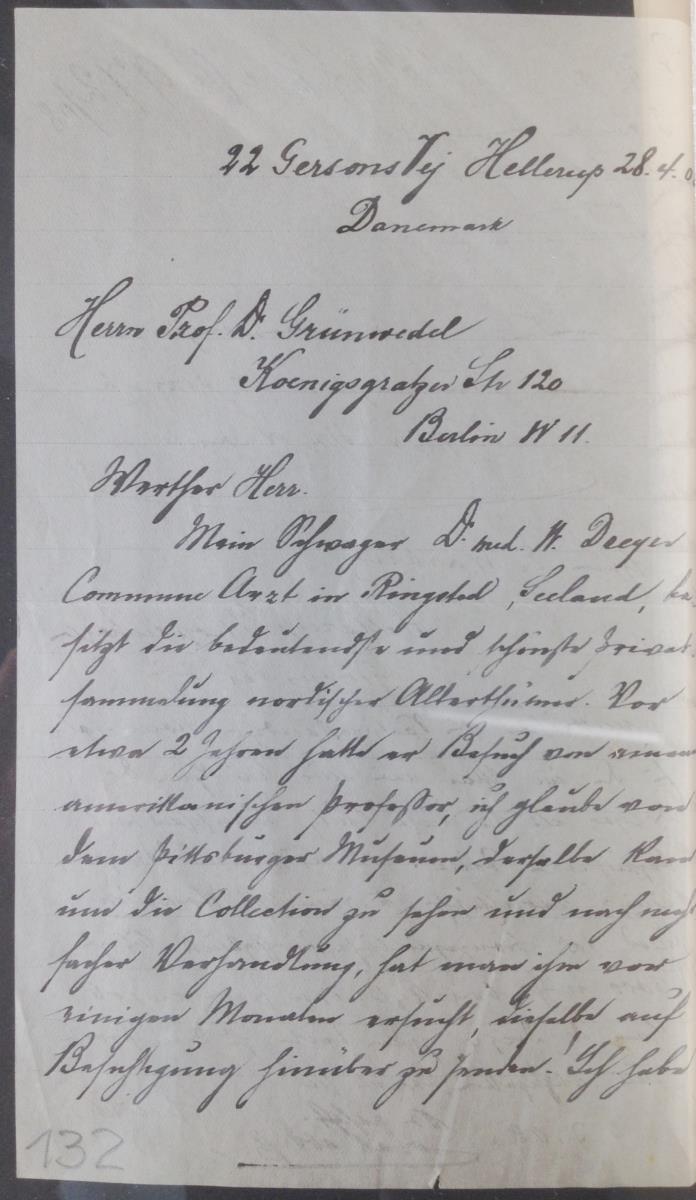 22 Gersons Vej Hellerup 28.4.0
Danemark
Herrn Prof. Dr. Grünwedel
Koenigsgratzer Str 120
Berlin W 11.
Werther Herr.
Mein Schwager Dr. med. W. Dreyer
Commune Arzt in Ringsted, Seeland, be
sitzt die bedeutendste und schönste Privat-
sammelung nordischer Alterthümer. Vor
etwa 2 Jahren hatte er Besuch von einem
amerikanischen Professor, ich glaube von
dem Pittsburger Museum, derselbe kam
um die Collection zu sehen und nach
facher Verhandlung, hat man ihn vor
einigen Monaten ersucht, dieselbe auf
Besichtigung hinüber zu senden! Ich habe
132